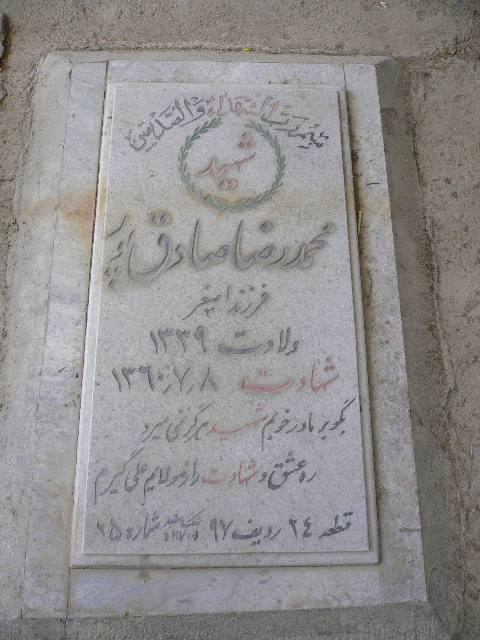 بسم رب الشهداء والصدیقین
شهید
محمدرضا صادق پور
فرزند اصغر
ولادت ۱۳۳۹
شهادت ۱۳۶۰/۷/۸
بگو بر مادر خوبم شهید هرگز نمی میرد
ره عشق و شهادت را ز مولایم علی گیرم
قطعه ۲۴ ردیف ۹۷ شماره ۲۵